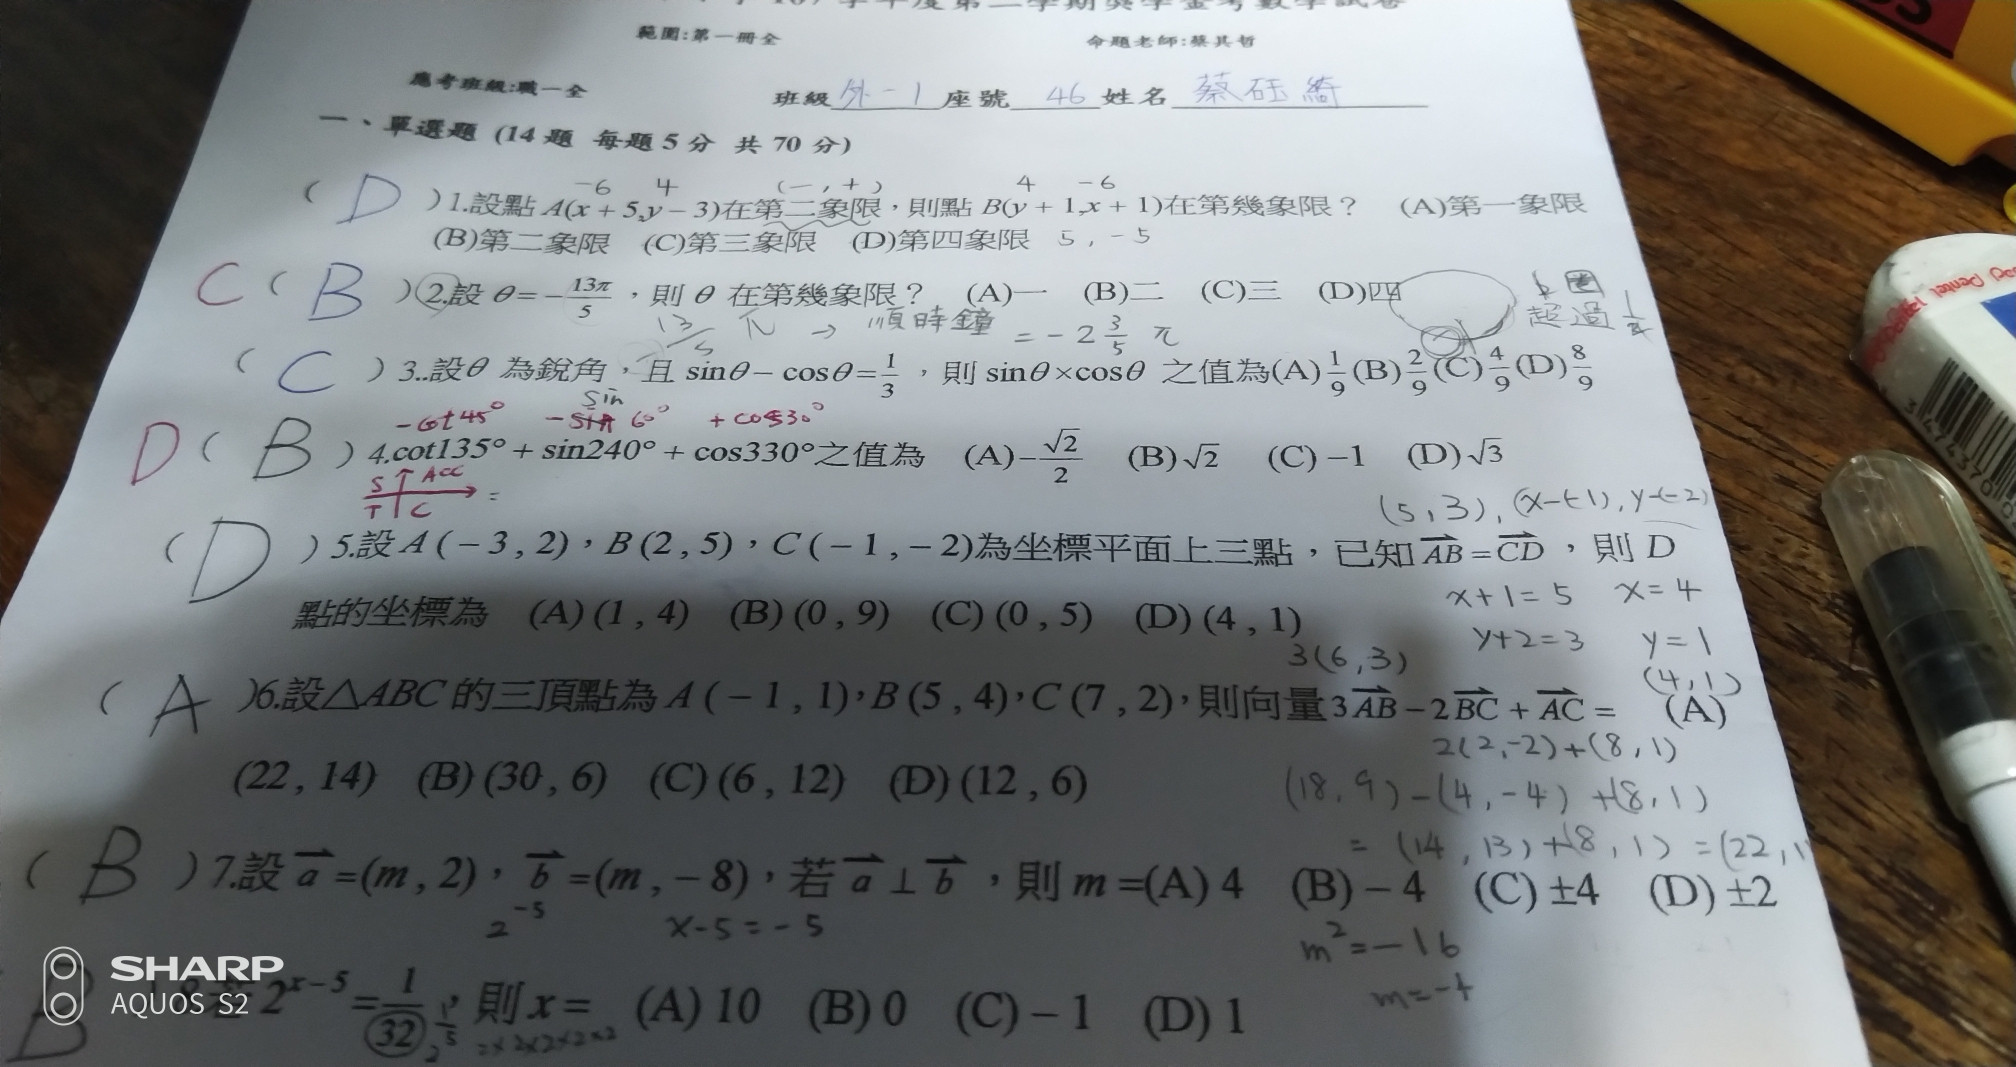 範圍:第一冊全
命題老師:蔡其哲
應考班級:職一全
班級 外-1 座號 46 姓名 蔡砡綺
一、單選題 (14 題 每題 5 分 共 70 分)
-6 4 (-,+) 4 -6
( D )1.設點 A(x+5,y-3)在第二象限,則點 B(y+1,x+1)在第幾象限? (A)第一象限
(B)第二象限 (C)第三象限 (D)第四象限 5, -5
C ( B )2.設 θ=-13π/5,則 θ 在第幾象限? (A)一 (B)二 (C)三 (D)四
13/5 π → 順時鐘 = -2 3/5 π
超過
( C )3..設θ 為銳角,且 sinθ-cosθ=1/3,則 sinθ×cosθ 之值為(A)1/9(B)2/9(C)4/9(D)8/9
sin
-cot45° -sin 60° +cos30°
D ( B )4.cot135°+sin240°+cos330°之值為 (A)-√2/2 (B)√2 (C)-1 (D)√3
S Acc
T C =
(5,3),(x-(-1),y-(-2)
( D )5.設 A(-3,2),B(2,5),C(-1,-2)為坐標平面上三點,已知 AB=CD,則 D
x+1=5 x=4
點的坐標為 (A)(1,4) (B)(0,9) (C)(0,5) (D)(4,1)
y+2=3 y=1
3(6,3) (4,1)
( A )6.設△ABC 的三頂點為 A(-1,1),B(5,4),C(7,2),則向量3AB-2BC+AC= (A)
2(2,-2)+(8,1)
(22,14) (B)(30,6) (C)(6,12) (D)(12,6)
(18,9)-(4,-4)+(8,1)
=(14,13)+(8,1)=(22,1
( B )7.設 a=(m,2),b=(m,-8),若 a⊥b,則 m=(A) 4 (B)-4 (C)±4 (D)±2
2^-5 x-5=-5
m²=-16
m=-4
B 2^x-5=1/32,則 x= (A) 10 (B) 0 (C)-1 (D) 1
SHARP
AQUOS S2